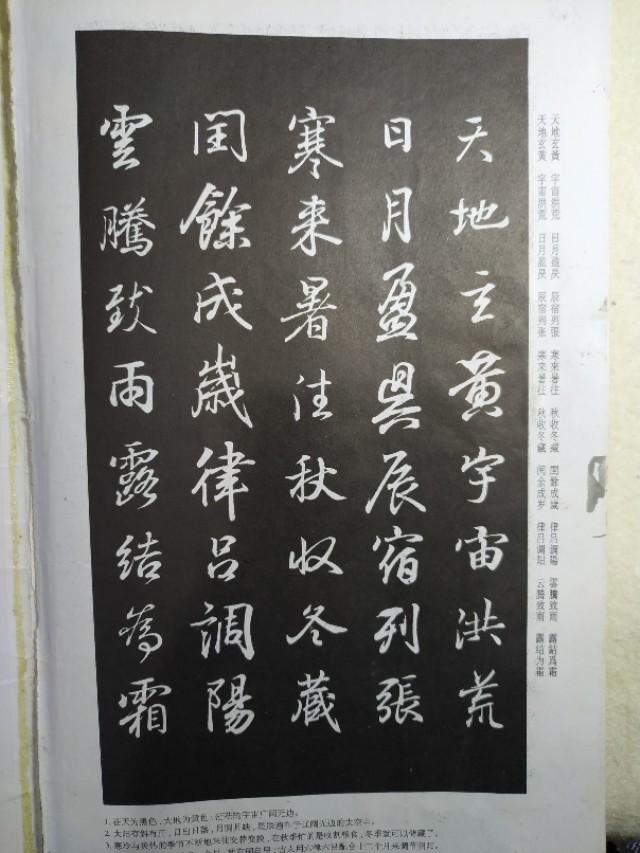 天地玄黃 宇宙洪荒 日月盈昃 辰宿列張 寒來暑往 秋收冬藏 閏餘成歲 律呂調陽 雲騰致雨 露結爲霜
天地玄黄 宇宙洪荒 日月盈昃 辰宿列张 寒来暑往 秋收冬藏 闰余成岁 律吕调阳 云腾致雨 露结为霜
天地玄黃宇宙洪荒
日月盈昃辰宿列張
寒来暑往秋收冬蔵
閏餘成歲律吕調陽
雲騰致雨露結為霜
1. 苍天为黑色，大地为黄色；茫茫的宇宙广阔无边。
2. 太阳有斜有正，日出日落，月圆月缺，星辰遍布于辽阔无边的太空中。
3. 寒冷与炎热的季节不断地来往交替变换，在秋季忙的是收割粮食，冬季就可以储藏了。